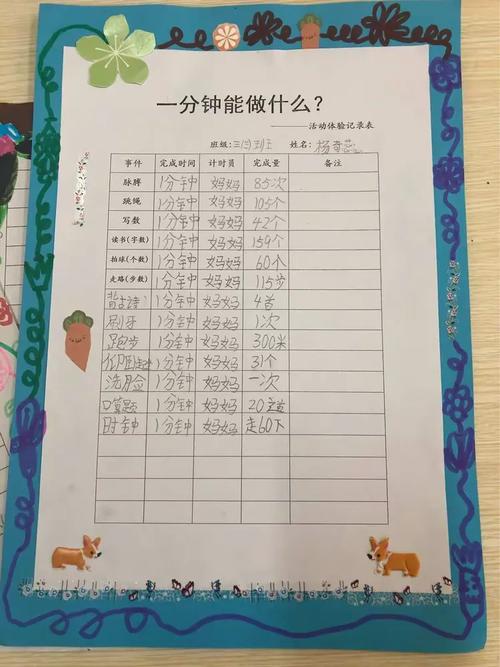 一分钟能做什么？
———活动体验记录表
班级: 三(3)班 姓名:
事件 完成时间 计时员 完成量 备注
脉搏 1分钟 妈妈 85次
跳绳 1分钟 妈妈 105个
写数 1分钟 妈妈 42个
读书(字数) 1分钟 妈妈 159个
拍球(个数) 1分钟 妈妈 60个
走路(步数) 1分钟 妈妈 115步
背古诗 1分钟 妈妈 4首
刷牙 1分钟 妈妈 1次
跑步 1分钟 妈妈 300米
仰卧起坐 1分钟 妈妈 31个
洗脸 1分钟 妈妈 一次
口算题 1分钟 妈妈 20
时钟 1分钟 妈妈 走60下